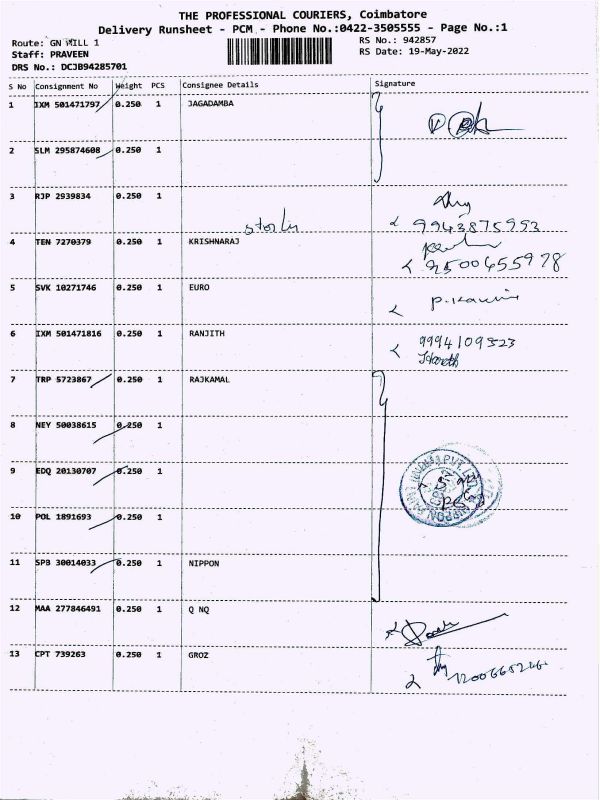 THE PROFESSIONAL COURIERS, Coimbatore
Delivery Runsheet - PCM - Phone No.:0422-3505555 - Page No.:1
Route: GN MILL 1
RS No.: 942857
Staff: PRAVEEN
RS Date: 19-May-2022
DRS No.: DCJB94285701
S No Consignment No Weight PCS Consignee Details Signature
1 IXM 501471797 0.250 1 JAGADAMBA
2 SLM 295874608 0.250 1
3 RJP 2939834 0.250 1
9943875953
4 TEN 7270379 0.250 1 KRISHNARAJ
9500455978
5 SVK 10271746 0.250 1 EURO
P. Kavin
6 IXM 501471816 0.250 1 RANJITH
9994109323
7 TRP 5723867 0.250 1 RAJKAMAL
8 NEY 50038615 0.250 1
9 EDQ 20130707 0.250 1
10 POL 1891693 0.250 1
11 SPB 30014033 0.250 1 NIPPON
12 MAA 277846491 0.250 1 Q NQ
13 CPT 739263 0.250 1 GROZ